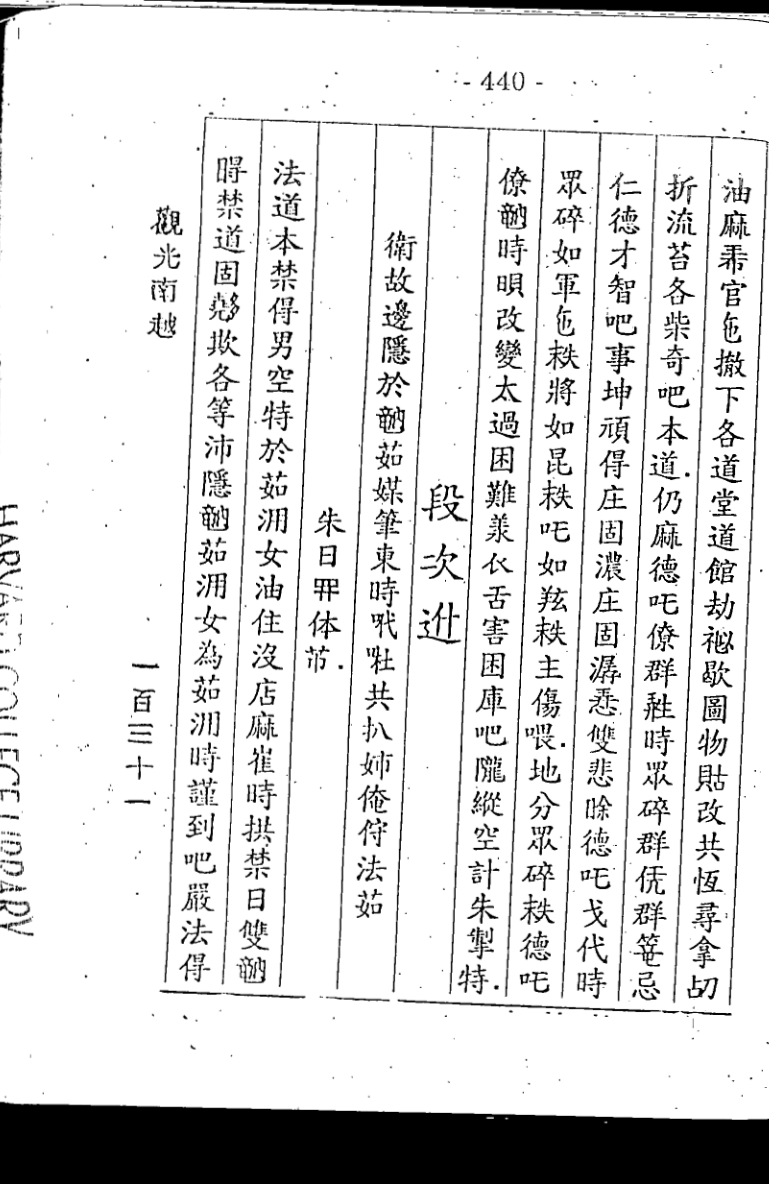 - 440 -
油麻𠻀官𠇍撤下各道堂道館劫祕歇圖物貼改共恆尋拿刧
折流苔各柴奇吧本道.仍麻德吒僚群𤯨時眾碎群侊群篭忌
仁德才智吧事坤頑得庄固濃庄固潺𢙬雙悲除德吒戈代時
眾碎如軍𠇍秩將如昆秩吒如羝秩主傷喂.地分眾碎秩德吒
僚𥪝時唄改變太過困難羕伩舌害困庫吧隴縱空計朱掣特.
段次𨒒
衛故邊隱於𥪝茹媒筆東時吠㕵共扒姉俺侼法茹
朱日罪体芇.
法道本禁得男空特於茹𣳔女油住沒店麻崔時拱禁日雙𥪝
㝵禁道固𡗉欺各等沛隱𥪝茹𣳔女為茹𣳔時謹到吧嚴法得
觀光南越
一百三十一
HARVARD COLLEGE LIBRARY